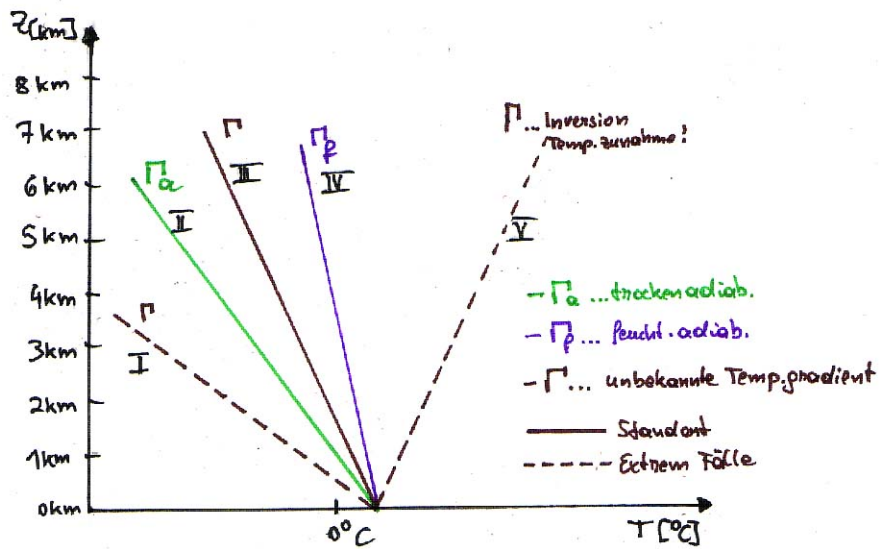 Z[km]
8km
7km
6km
5km
4km
3km
2km
1km
0km
Γ
I
Γa
II
Γ
III
Γf
IV
Γ... Inversion
Temp.zunahme!
V
- Γa ...trockenadiab.
- Γf ... feucht.adiab.
- Γ... unbekannte Temp.gradient
Standart
Extrem Fälle
0°C
T[°C]